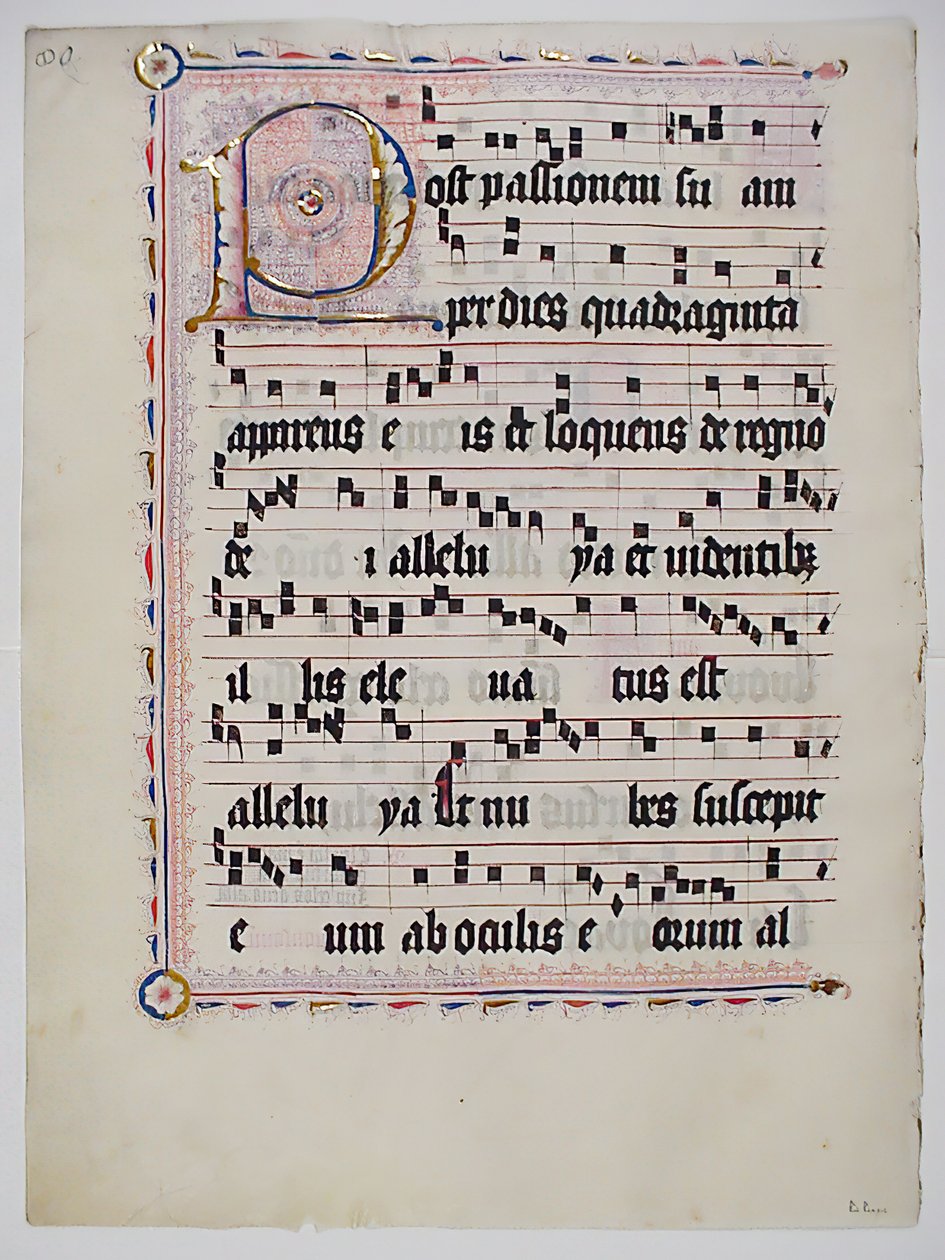 Post passionem su am
per dies quadraginta
apparens e is et loquens de regno
de i allelu ya et videntibz
il lis ele ua tus est
allelu ya Et nu bes suscepit
e um ab oculis e orum al